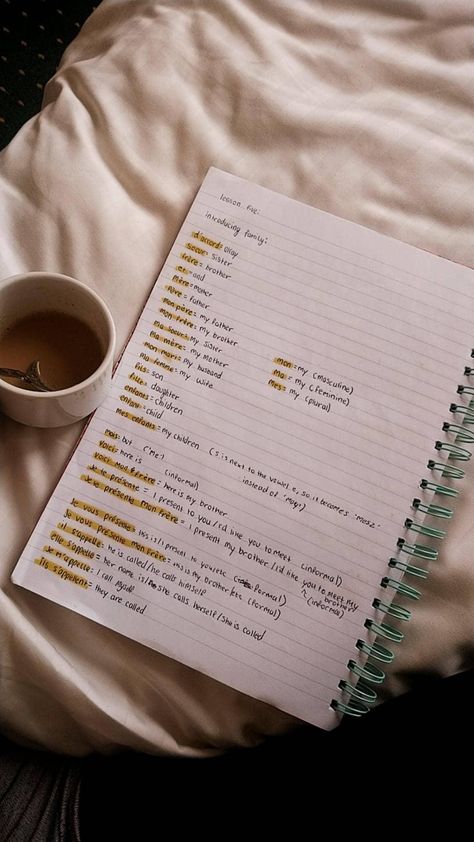 lesson five:
introducing family:
d'accord= Okay
soeur= Sister
frère= brother
et= and
mère= mother
Père= father
mon père= my father
mon frère= my brother
ma soeur= my sister
ma mère= my mother
mon mari= my husband
ma femme= my wife
fils= son
fille= daughter
enfants= children
enfant= child
mes enfants= my children (s is next to the vowel e, so it becomes 'mesz' instead of 'may')
mon= my (masculine)
ma= my (feminine)
mes= my (plural)
mais= but ('me')
Voici= here is
Voici mon frère= here is my brother
(informal)
Je te présente= I present to you/I'd like you to meet (informal)
Je te présente mon frère= I present my brother/I'd like you to meet my brother (informal)
Je vous présente= this is/I present to you etc (formal)
Je vous présente mon frère= this is my brother etc (formal)
il s'appelle= he is called/he calls himself
elle s'appelle= her name is/she calls herself/she is called
Je m'appelle= I call myself
ils s'appellent= they are called